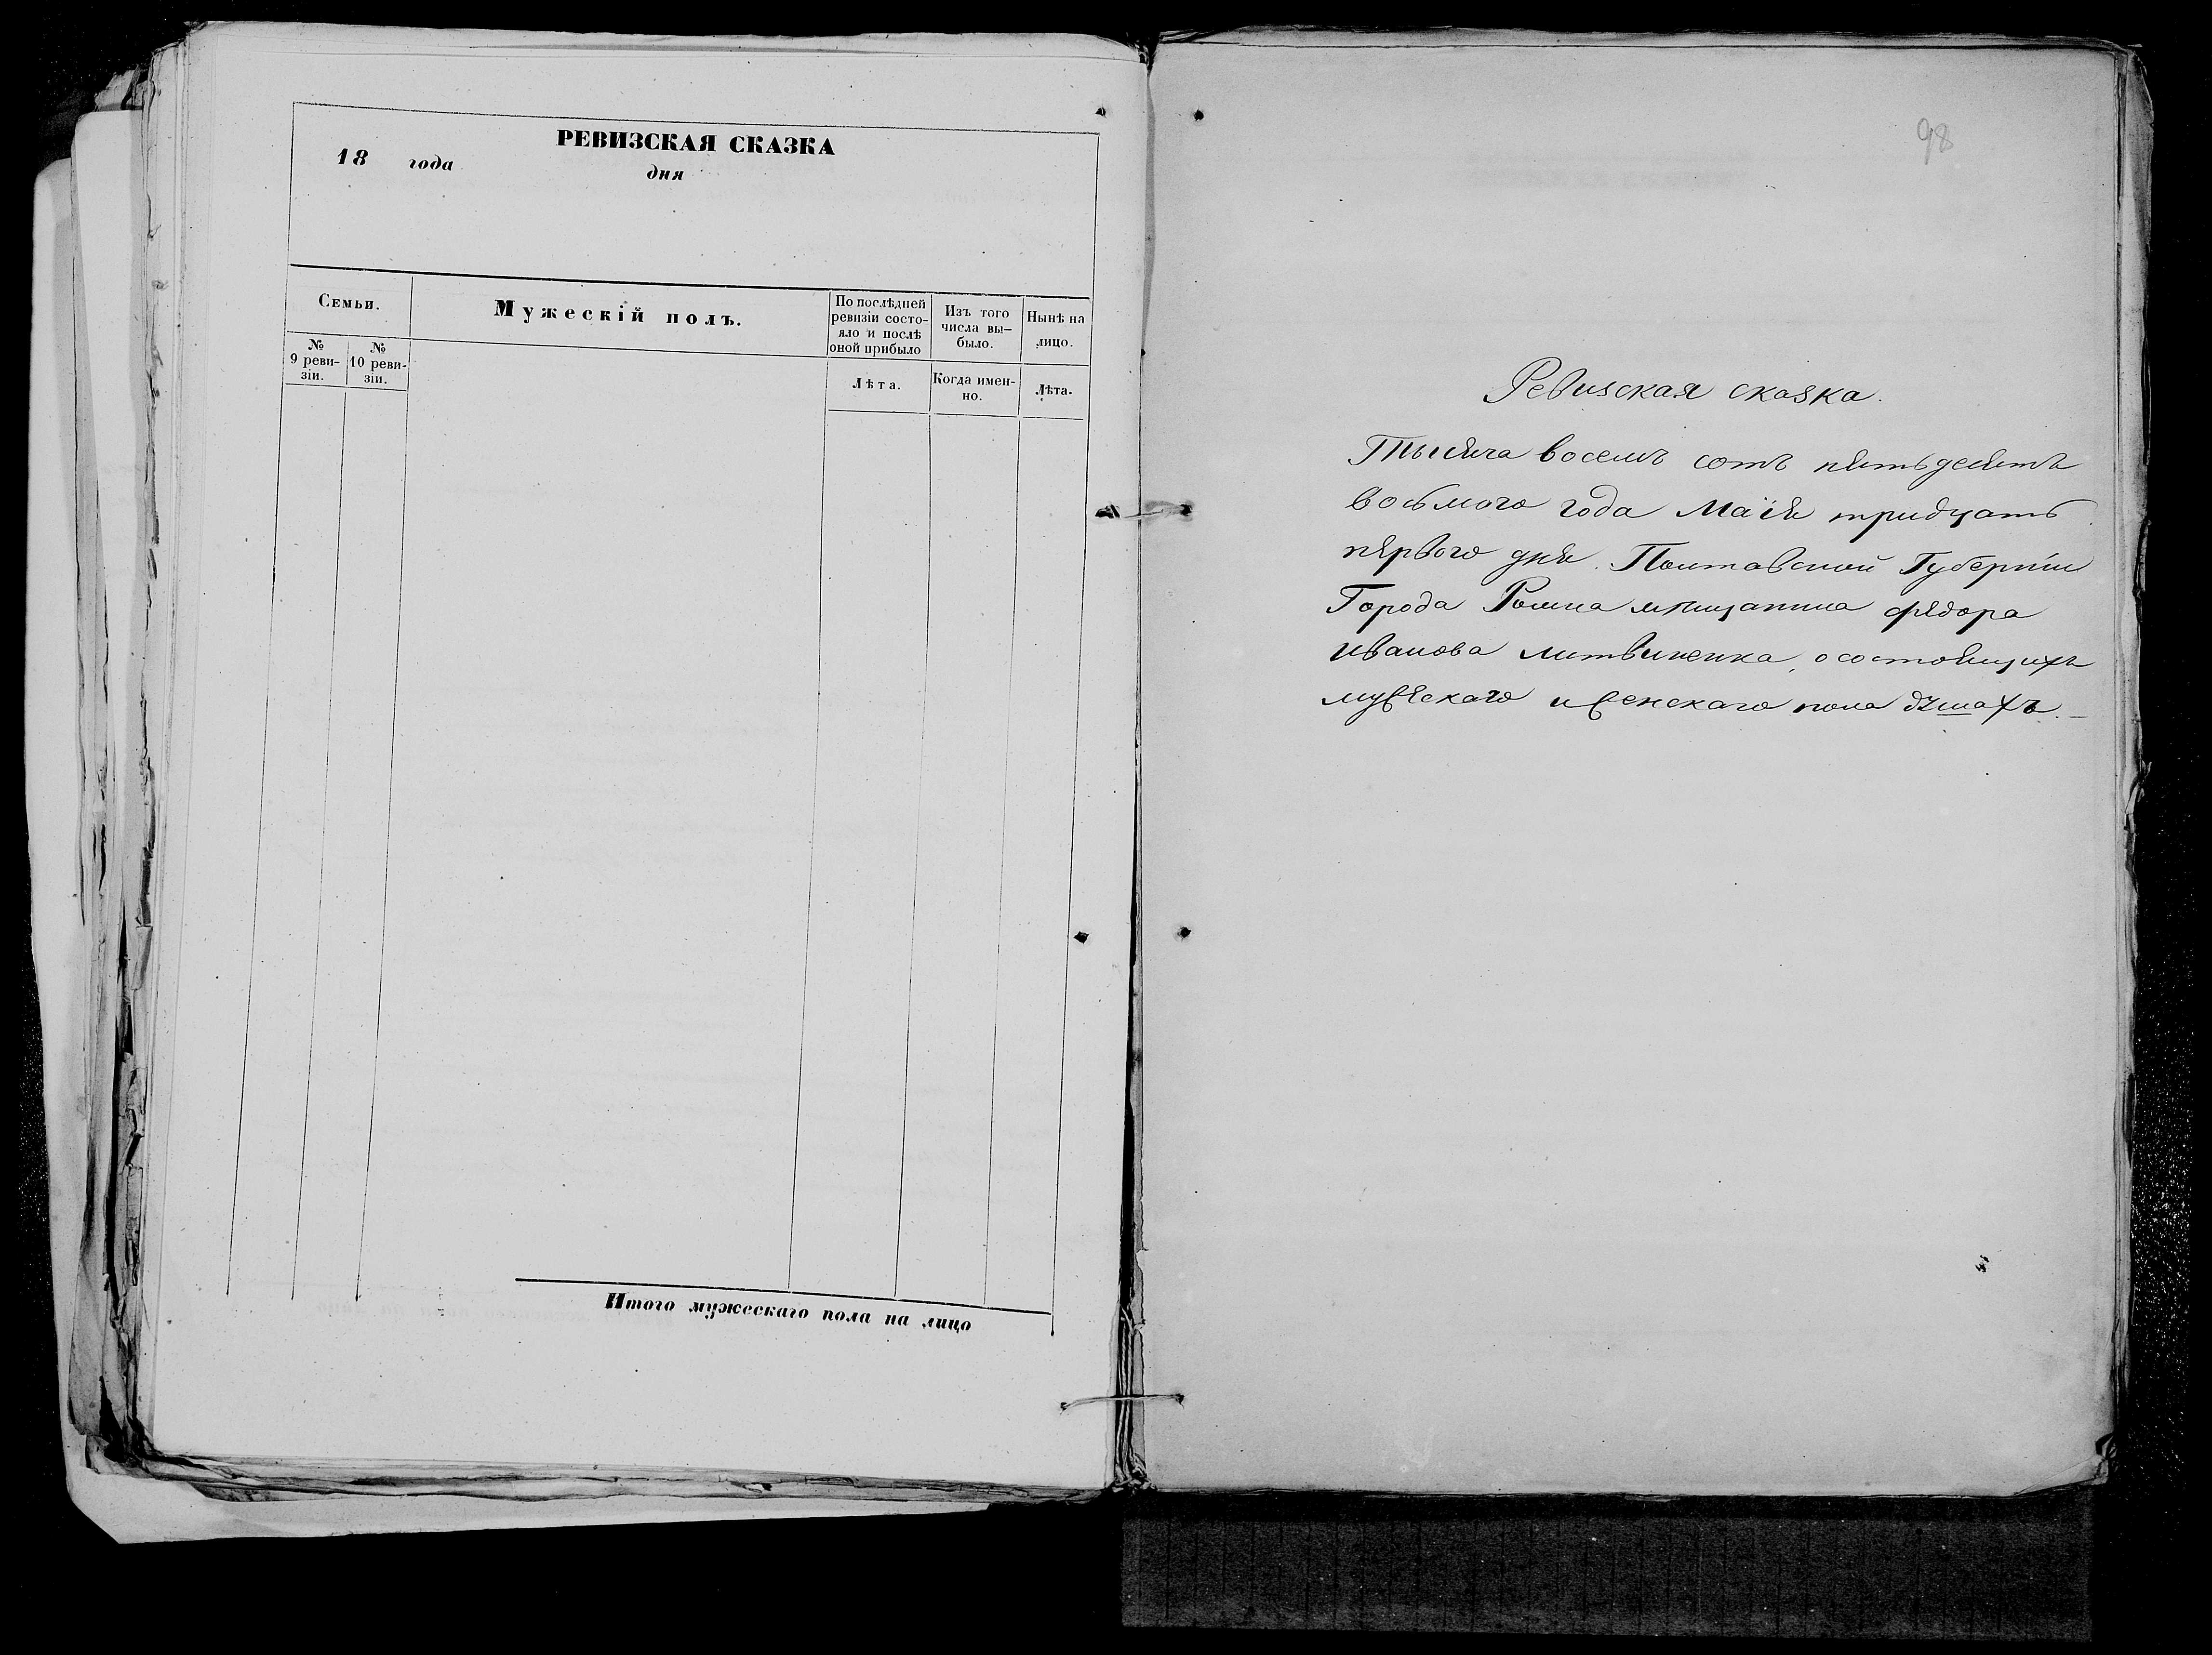 РЕВИЗСКАЯ СКАЗКА
18 года дня
Семьи.
Мужескій полъ.
По послѣдней
ревизіи состо-
яло и послѣ
оной прибыло
Изъ того
числа вы-
было.
Нынѣ на
лицо.
№
9 реви-
зіи.
№
10 реви-
зіи.
Лѣта.
Когда имен-
но.
Лѣта.
Итого мужескаго пола на лицо
98
Ревизская сказка.
Тысяча восемъ сотъ пятьдесятъ
восьмого года Маія тридцать
первого дня. Полтавской Губерніи
Города Ромна мѣщанина Федора
Иванова Литвиненка, о состоящихъ
мужескаго и женскаго пола душахъ.